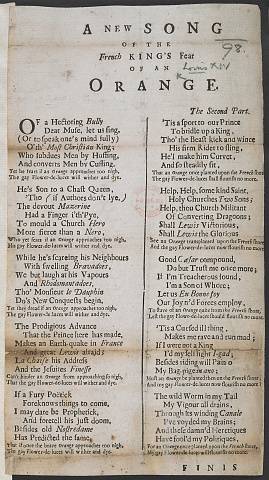 A NEW SONG
OF THE
French KING's Fear
OF AN
ORANGE.
98.
Louis XIV
OF a Hectoring Bully
Dear Muse, let us sing,
(Or to speak one's mind fully)
O'th' Most Christian King;
Who subdues Men by Huffing,
And converts Men by Cuffing.
Yet he fears if an Orange approaches too nigh,
The gay Flower-de-luces will wither and dye.
He's Son to a Chast Queen,
Tho' (if Authors don't lye,)
The devout Mazarine
Had a Finger i'th'Pye,
To mould a Church Hero
More fierce than a Nero,
Who yet fears if an Orange approaches too nigh,
His gay Flower-de-luces will wither and dye.
While he's scareing his Neighbours
With swelling Bravadoes,
We but laugh at his Vapours
And Rhodomontadoes,
Tho' Monsieur le Dauphin
Do's New Conquests begin,
The gay Flower-de-luces will wither and dye.
The Prodigious Advance
That the Prince here has made,
Makes an Earth-quake in France
And great Lewis afraid:
La Chaise his Address
And the Jesuites Finesse
Can't hinder an Orange from approaching so nigh,
That the gay Flower-de-luces will wither and dye.
If a Fury Poetick
Foreknows things to come,
I may dare be Prophetick,
And foretell his just doom,
Besides old Nostredame
Has Predicted the same,
The gay Flower-de-luces will wither and dye.
The Second Part.
'Tis a sport to our Prince
To bridle up a King,
Tho' the Beast kick and wince
His firm Rider to fling,
He'll make him Curvet,
And so steadily sit,
That an Orange once planted upon the French Shore,
The gay Flower-de-luces shall flourish no more.
Help, Help, some kind Saint,
Holy Churches Two Sons;
Help, thou Church Militant
Of Converting Dragoons;
Shall Lewis Victorious,
Shall Lewis the Glorious
See an Orange transplanted upon the French Shore,
And the gay Flower-de-luces flourish no more?
Good Cæsar compound,
Do but Trust me once more;
If I'm Treacherous found,
I'm a Son of Whore;
Let us En Bonne foy
Our Joyn'd Forces employ,
Lest the gay Flower-de-luces shall flourish no more.
'Tis a Cursed ill thing,
Makes me rave and run mad;
If I were not a King
I'd my self fight I-gad,
Besides riding will Pain o
My Bag-pipe in ano;
Must an Orange be planted then on the French Shore,
And my gay Flower-de-luces must flourish no more?
The wild Worm in my Tail
My Vigour all drains,
Through its winding Canale
I've voyded my Brains;
And these damn'd Hereticques
Have fool'd my Politiques,
For an Orange once planted upon the French Shore,
My gay Flower-de-luces will flourish no more.
FINIS